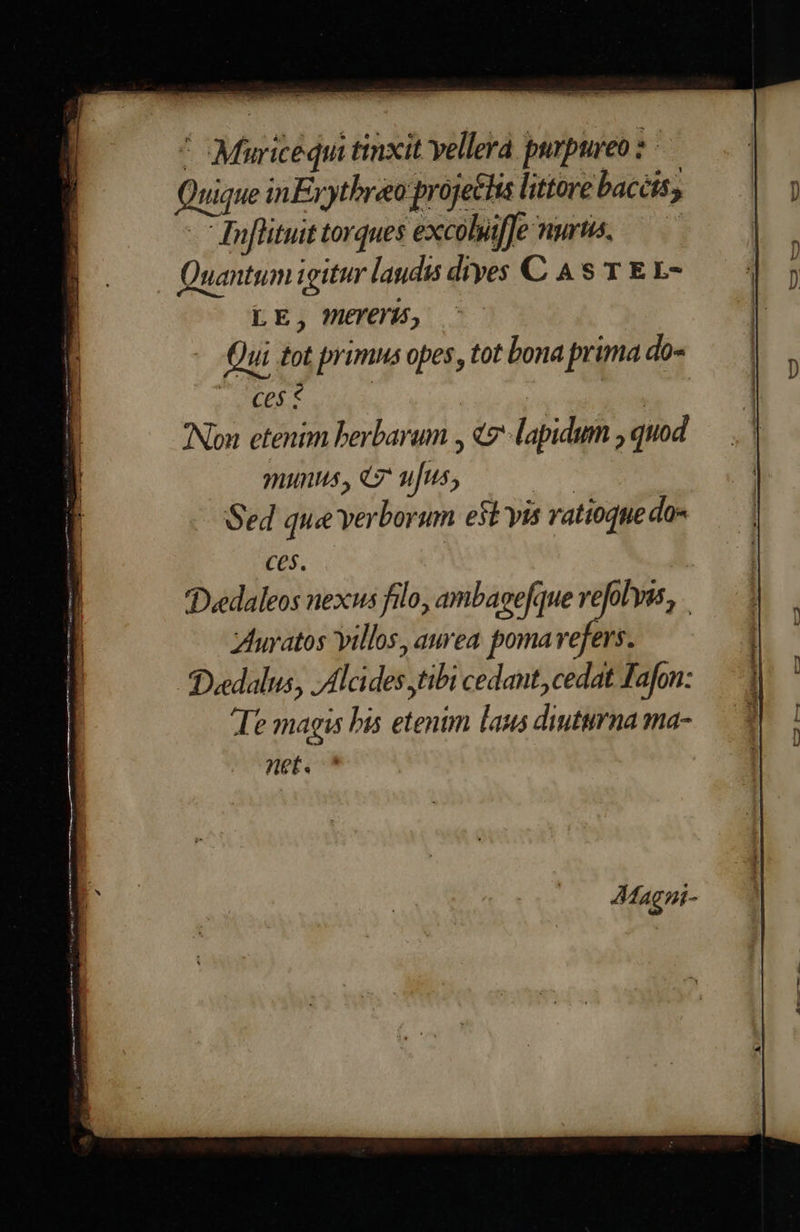 Murice qui tinxit vellera purpureo:
Quique in Erythræo projectis littore baccis,
Inſtituit torques excoluiſſe nurus.
Quantum igitur laudis dives CASTEL-
LE, mereris,
Qui tot primus opes, tot bona prima do-
ces?
Non etenim herbarum, & lapidum, quod
munus, & uſus,
Sed quæ verborum est vis ratioque do-
ces.
Dædaleos nexus filo, ambageſque reſolvis,
Auratos villos, aurea poma refers.
Dædalus, Alcides, tibi cedant, cedat Iaſon:
Te magis his etenim laus diuturna ma-
net.
Magni-